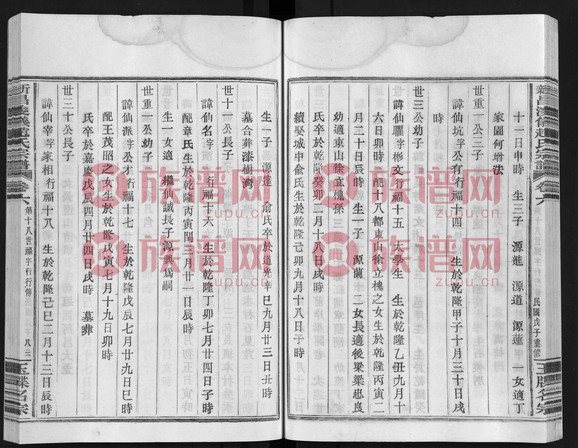 十一日申時 生三子 源進 源道 源蓮 一女適丁
家園何增法
世重一公三子
諱仙坑字公有行福十四 生於乾隆甲子十月三十日戌
時
世三公幼子
諱仙騮字彬文行福十五 太學生 生於乾隆乙丑九月十
六日卯時 配十八都東山徐立槐之女生於乾隆丙寅二
月二十日辰時 生一子 源蘭 二女長適後梁梁思虞
幼適東山徐立槐孫
氏卒於乾隆癸卯二月十八日戌時
續娶城中俞氏生於乾隆己卯九月十八日子時
生一子 源達 俞氏卒於道光辛巳九月廿三日丑時
墓合葬漆樹灣
世十一公長子
諱仙名字 行福十六 生於乾隆丁卯七月廿四日子時
配章氏生於乾隆丙寅閏二月廿一日辰時
生一女適 繼仙誠長子源興爲嗣
世重一公幼子
諱仙派字公才行福十七 生於乾隆戊辰七月廿九日巳時
配王茂昭之女生於乾隆戊寅七月十九日卯時
氏卒於嘉慶戊辰四月廿四日戌時 墓葬
世三十公長子
諱仙宰字家相行福十八 生於乾隆己巳二月十三日辰時
卷六
民國戊子重修
玉牒名宗
新昌
趙氏宗譜
卷六
第十八世福字行行傳
玉牒名宗
族谱网
zupu.cn
族谱网
zupu.cn